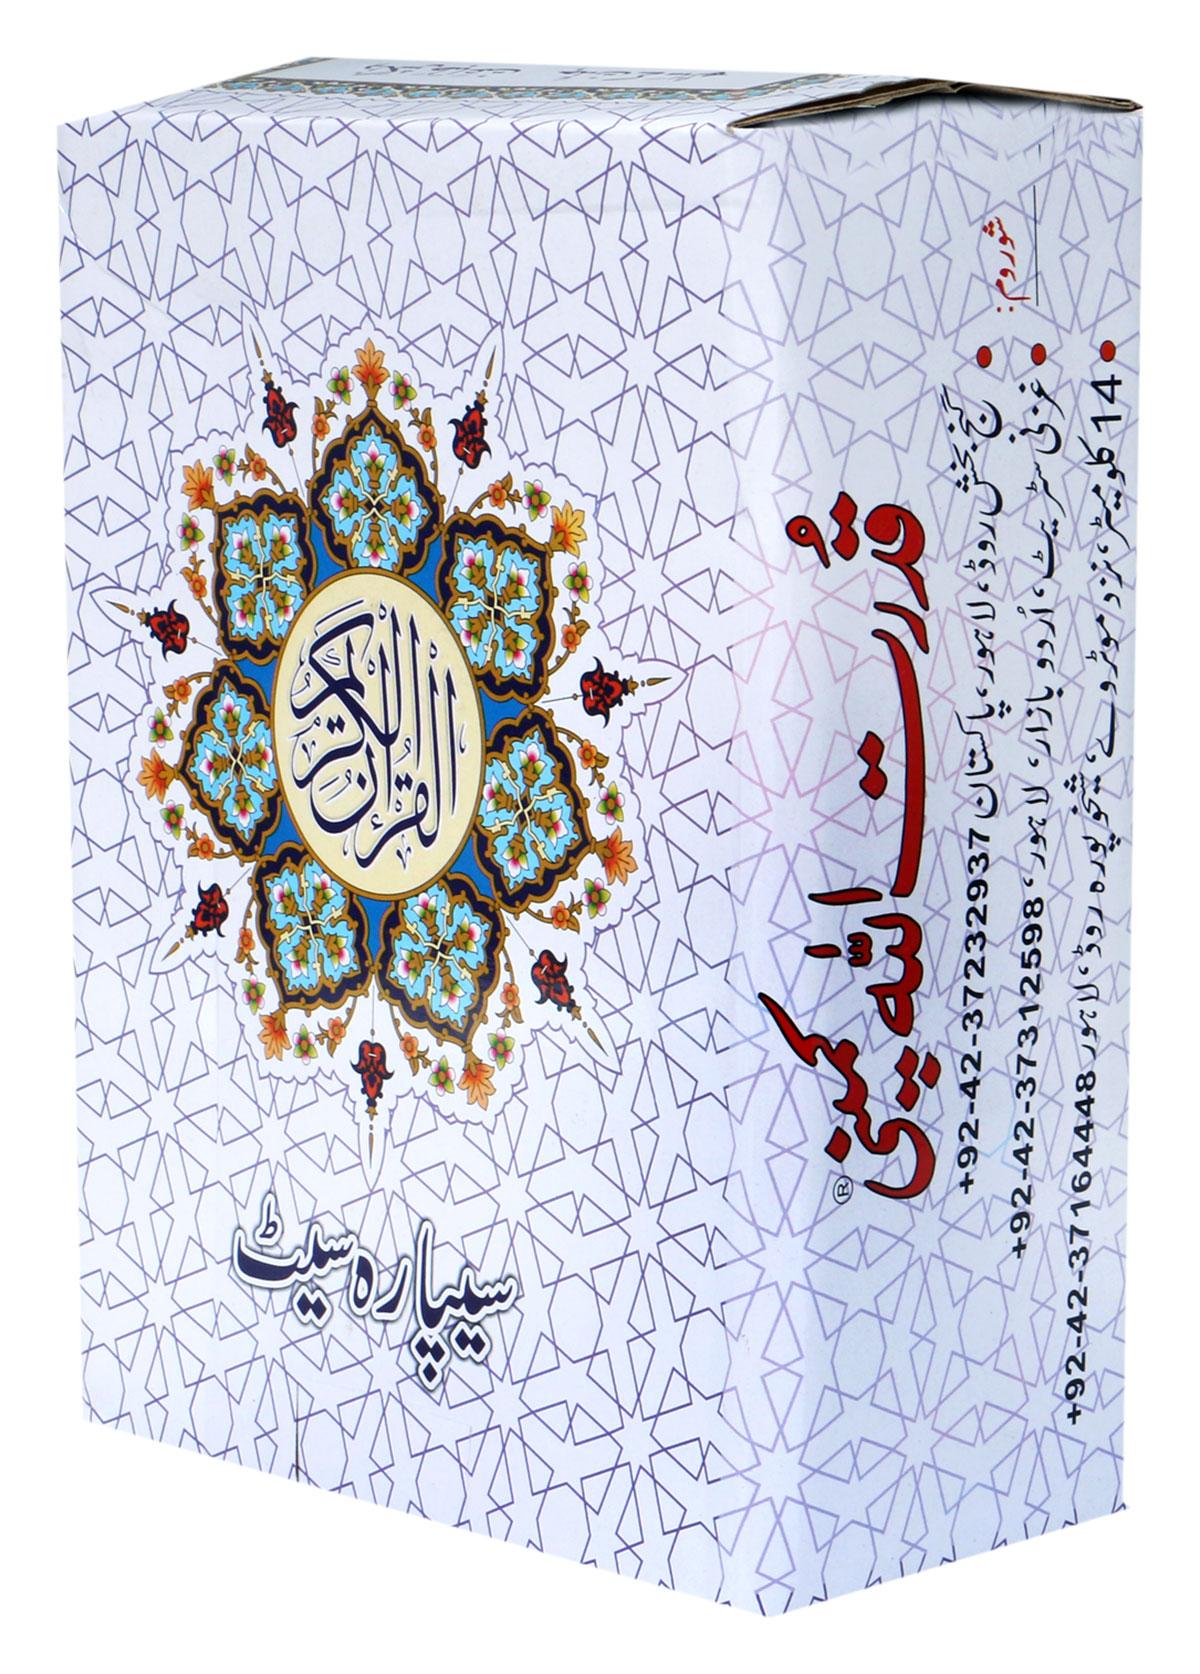 القرآن الكريم
سیپارہ سیٹ
قدرت اللہ کمپنی ®
شوروم:
• گنج بخش روڈ، لاہور، پاکستان +92-42-37232937
• غزنی سٹریٹ، اُردو بازار، لاہور، +92-42-37312598
• 14 کلومیٹر، نزد موٹروے، شیخوپورہ روڈ، لاہور +92-42-37164448